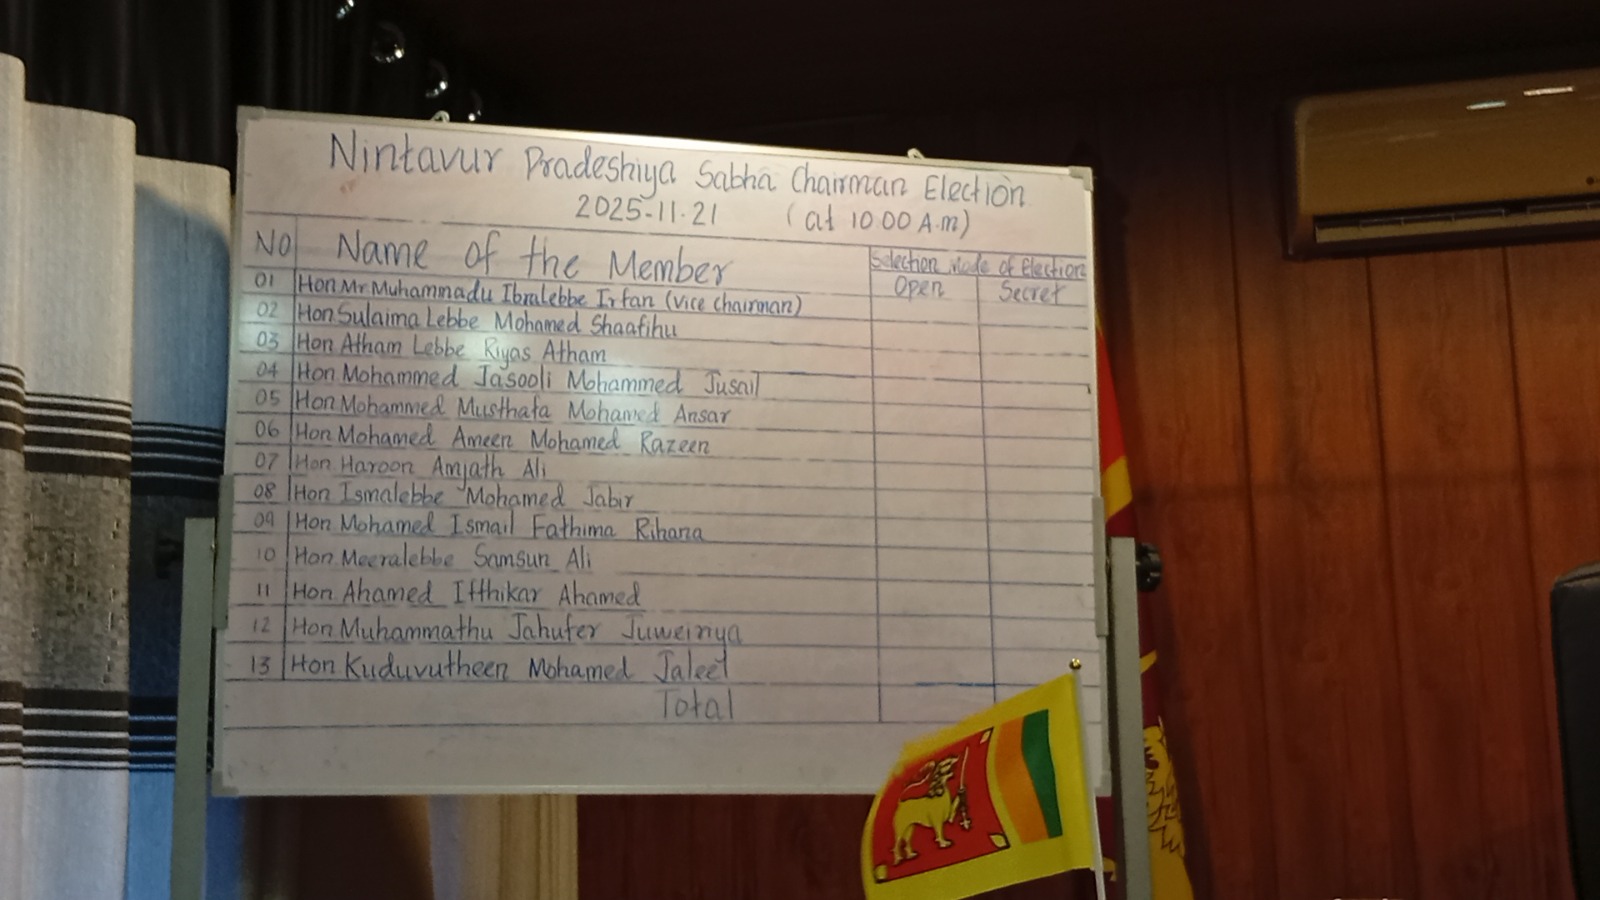 Nintavur Pradeshiya Sabha Chairman Election
2025-11-21 (at 10.00 A.m)
NO Name of the Member Selection Mode of Election
Open Secret
01 Hon Mr. Muhammadu Ibralebbe Irfan (Vice Chairman)
02 Hon Sulaima Lebbe Mohamed Shaafihu
03 Hon Atham Lebbe Riyas Atham
04 Hon Mohammed Jasooli Mohammed Jusail
05 Hon Mohammed Musthafa Mohamed Ansar
06 Hon Mohamed Ameen Mohamed Razeen
07 Hon Haroon Amjath Ali
08 Hon Ismalebbe Mohamed Jabir
09 Hon Mohamed Ismail Fathima Rihana
10 Hon Meeralebbe Samsun Ali
11 Hon Ahamed Ifthikar Ahamed
12 Hon Muhammathu Jahufer Juweiriya
13 Hon Kuduvutheen Mohamed Jaleel
Total